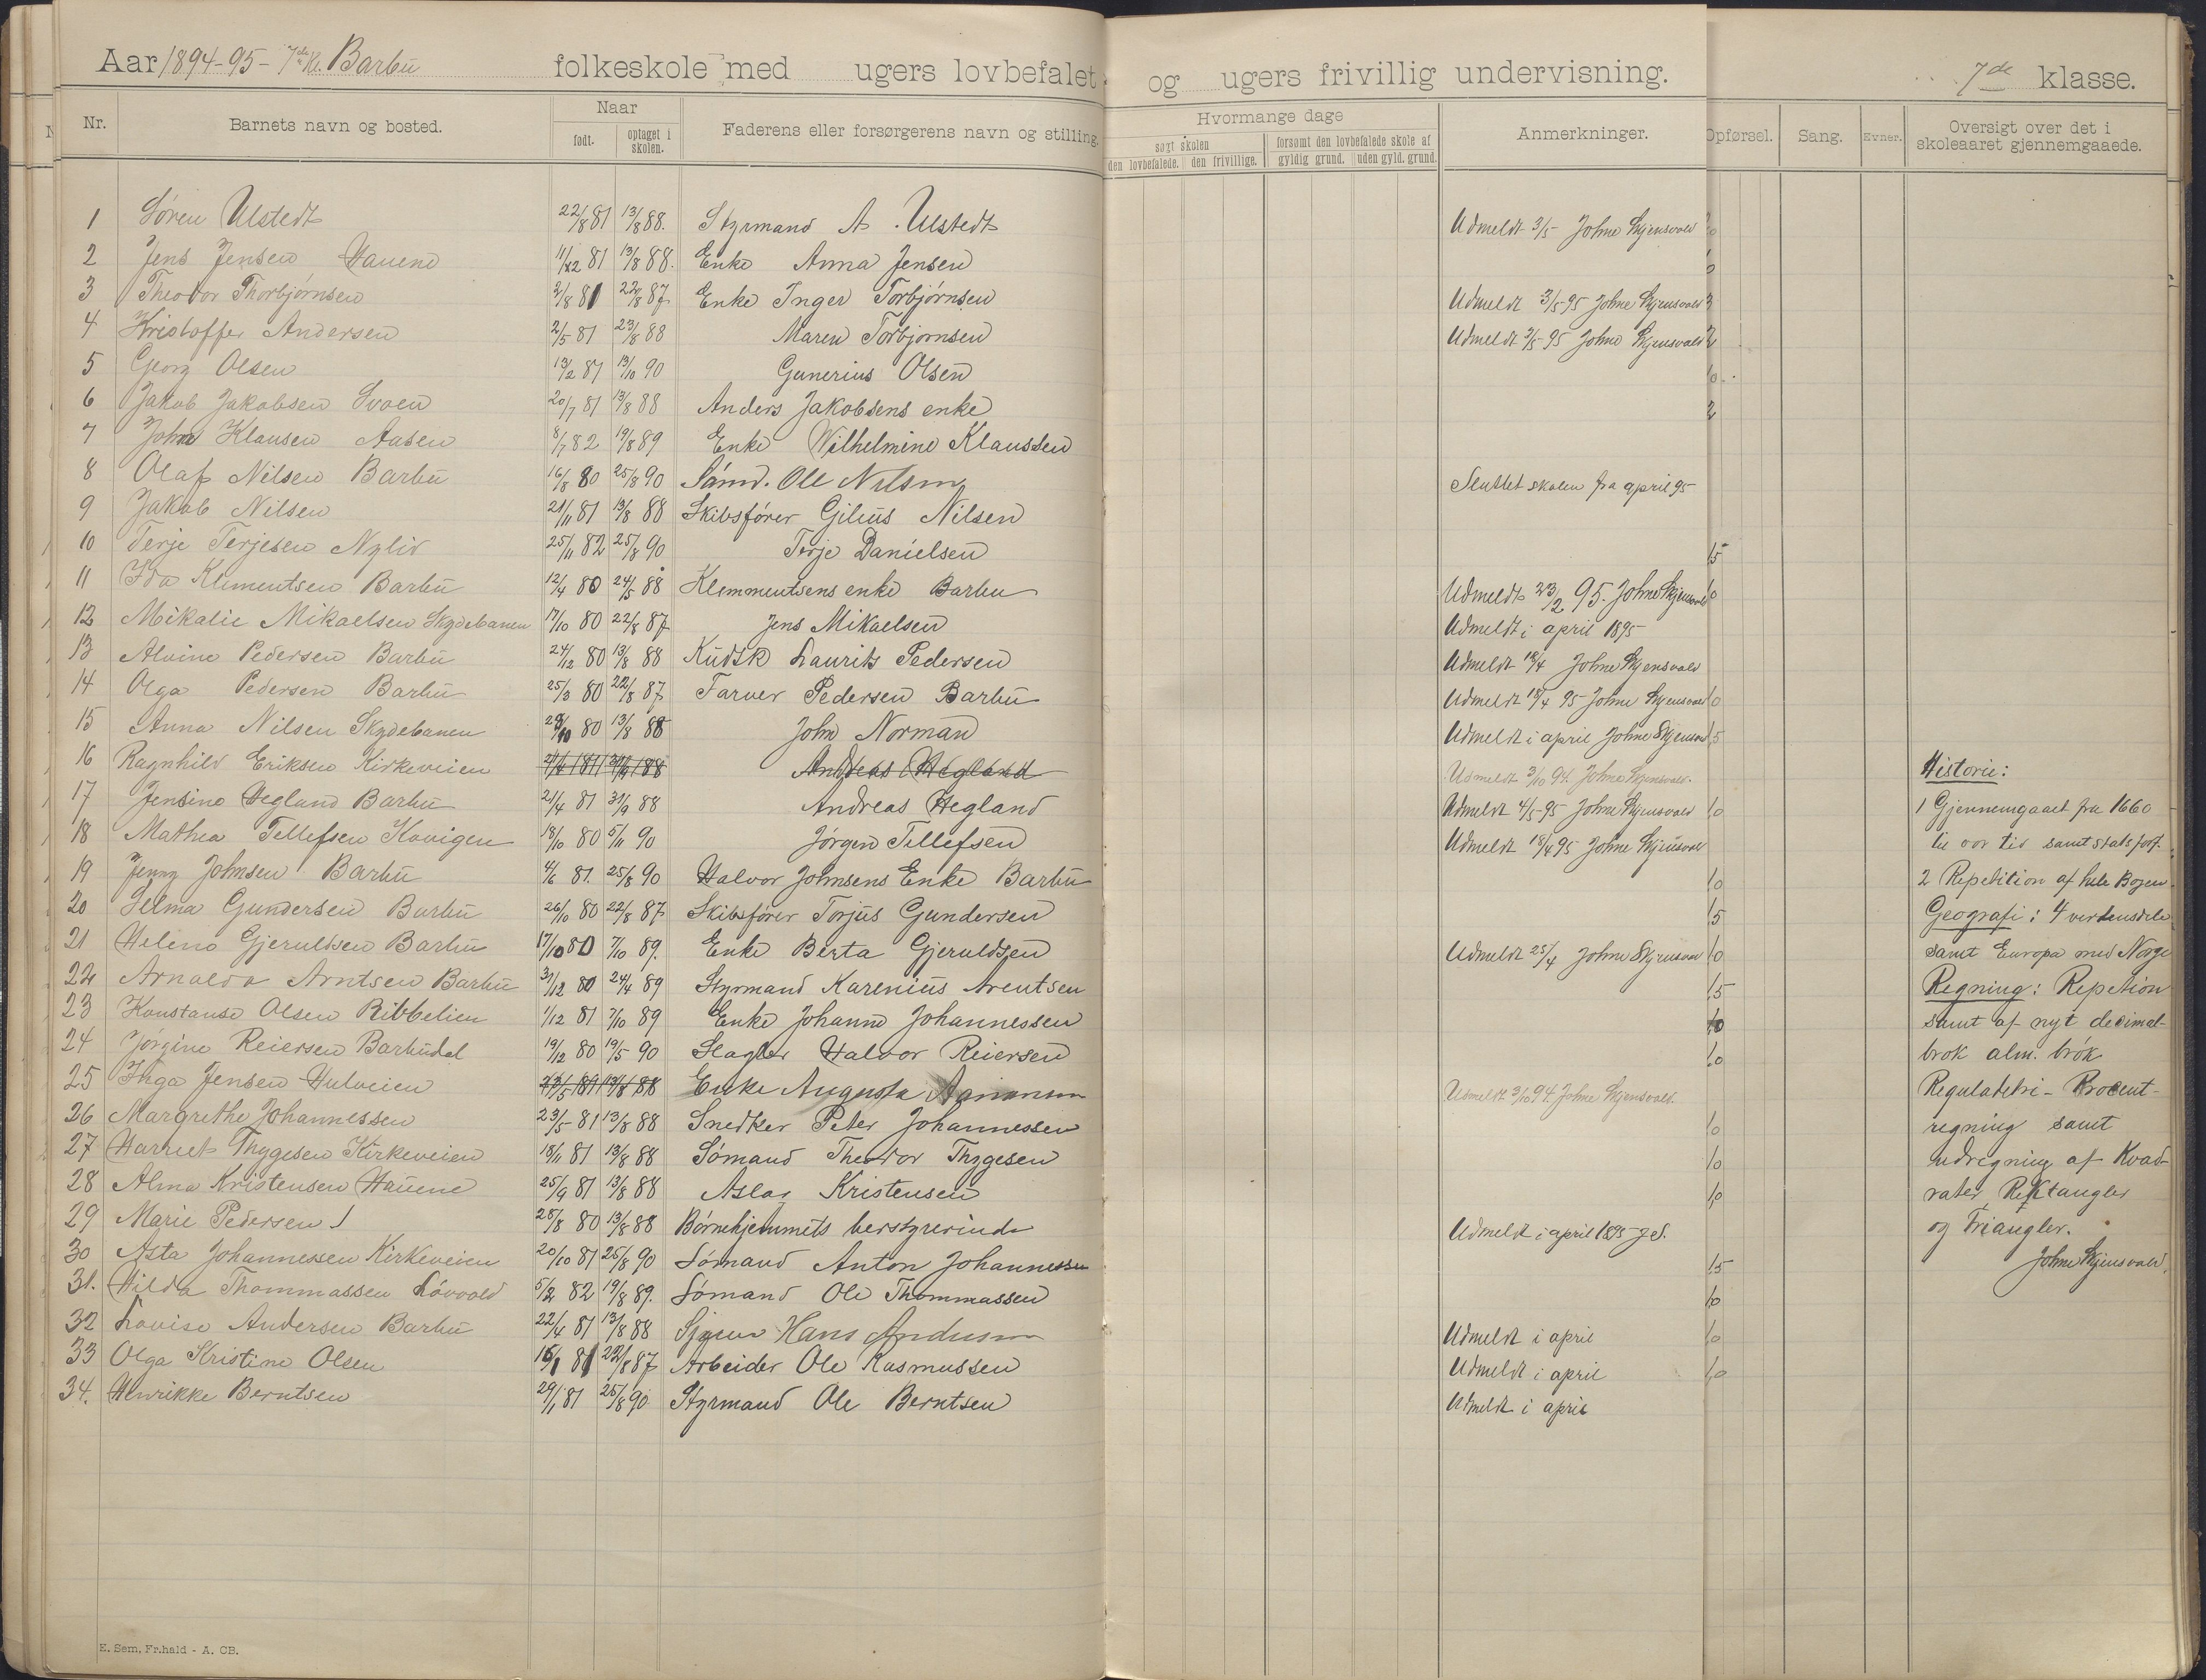 Aar 1894-95- 7de Kl. Barbu folkeskole med ugers lovbefalet og ugers frivillig undervisning. 7de klasse.
Nr. Barnets navn og bosted. Naar født. optaget i skolen. Faderens eller forsørgerens navn og stilling. Hvormange dage søgt skolen den lovbefalede. den frivillige. forsømt den lovbefalede skole af gyldig grund. uden gyld. grund. Anmerkninger. Opførsel. Sang. Evner. Oversigt over det i skoleaaret gjennemgaaede.
1 Søren Ulstedt 22/8 81 13/8 88. Styrmand A. Ulstedt Udmeldt 3/5 Johne Skjensvold
2 Jens Jensen Havene 11/12 81 13/8 88. Enke Anna Jensen
3 Theodor Thorbjørnsen 2/8 81 22/8 87 Enke Inger Torbjørnsen Udmeldt 3/5-95 Johne Skjensvold
4 Kristoffer Andersen 2/5 81 23/8 88 Maren Torbjørnsen Udmeldt 3/5 95 Johne Skjensvold
5 Georg Olsen 13/2 81 13/10 90 Gunerius Olsen
6 Jakob Jakobsen Svoen 20/7 81 13/8 88 Anders Jakobsens enke
7 Johne Klausen Aasen 8/7 82 19/8 89 Enke Wilhelmine Klaussen
8 Olaf Nilsen Barbu 16/8 80 25/8 90 Sømd. Ole Nilsen Sluttet skolen fra april 95
9 Jakob Nilsen 21/11 81 13/8 88 Skibsfører Gilius Nilsen
10 Terje Terjesen Nylid 25/11 82 25/8 90 Terje Danielsen 15
11 Ida Klementsen Barbu 12/4 80 24/5 88 Klemmentsens enke Barbu Udmeldt 23/2 95. Johne Skjensvold
12 Mikalie Mikaelsen Skydebanen 17/10 80 22/8 87 Jens Mikaelsen Udmeldt i april 1895
13 Alvine Pedersen Barbu 24/12 80 13/8 88 Kudsk Laurits Pedersen Udmeldt 18/4 Johne Skjensvold
14 Olga Pedersen Barbu 25/3 80 22/8 87 Farver Pedersen Barbu Udmeldt 18/4 95 Johne Skjensvold
15 Anna Nilsen Skydebanen 29/10 80 13/8 88 John Norman Udmeldt i april Johne Skjensvold
16 Ragnhild Eriksen Kirkeveien 21/4 81 31/9 88 Andreas Hegland Udmeldt 3/10 94. Johne Skjensvold. Historie:
17 Jensine Hegland Barbu 21/4 81 31/9 88 Andreas Hegland Udmeldt 4/5-95 Johne Skjensvold 10 1 Gjennemgaaet fra 1660
18 Mathea Tellefsen Kovigen 18/10 80 5/11 90 Jørgen Tellefsen Udmeldt 18/4 95 Johne Skjensvold til vor tid samt statsforf.
19 Jenny Johnsen Barbu 4/6 81. 25/8 90 Halvor Johnsens Enke Barbu 10 2 Repetition af hele Bogen.
20 Selma Gundersen Barbu 26/10 80 22/8 87 Skibsfører Torjus Gundersen 15 Geografi: 4 verdensdele
21 Helene Gjeruldsen Barbu 17/10 80 7/10 89. Enke Berta Gjeruldsen Udmeldt 25/4 Johne Skjensvold 10 samt Europa med Norge
22 Arnalda Arntsen Barbu 31/12 80 24/4 89 Styrmand Karenius Arentsen 15 Regning: Repetion
23 Konstanse Olsen Ribbelien 1/12 81 7/10 89 Enke Johanne Johannessen 10 samt af nyt decimal-
24 Jørgine Reiersen Barbudal 19/12 80 19/5 90 Slagter Halvor Reiersen 10 brøk alm. brøk
25 Inga Jensen Hulveien 23/5 81 13/8 88 Enke Augusta Udmeldt 3/10 94. Johne Skjensvold. Reguladetri - Procent-
26 Margrethe Johannessen 23/5 81 13/8 88 Snedker Peter Johannessen 10 regning samt
27 Harriet Thygesen Kirkeveien 18/11 81 13/8 88 Sømand Theodor Thygesen 10 udregning af Kvad-
28 Alma Kristensen Havene 25/9 81 13/8 88 Aslag Kristensen 10 rater Rektangler
29 Marie Pedersen 25/8 80 13/8 88 Børnehjemmets berstyrerinde Udmeldt i april 1895 og Triangler.
30 Asta Johannessen Kirkeveien 20/10 81 25/8 90 Sømand Anton Johannessen 15 Johne Skjensvold.
31. Hilda Thommassen Løvold 5/2 82 19/8 89. Sømand Ole Thommassen 10
32 Lovise Andersen Barbu 22/4 81 13/8 88 Hans Andersen Udmeldt i april 10
33 Olga Kristine Olsen 16/1 81 22/8 87 Arbeider Ole Rasmussen Udmeldt i april 10
34. Henrikke Berntsen 29/1 81 25/8 90 Styrmand Ole Berntsen Udmeldt i april
E. Sem, Fr.hald - A. CB.